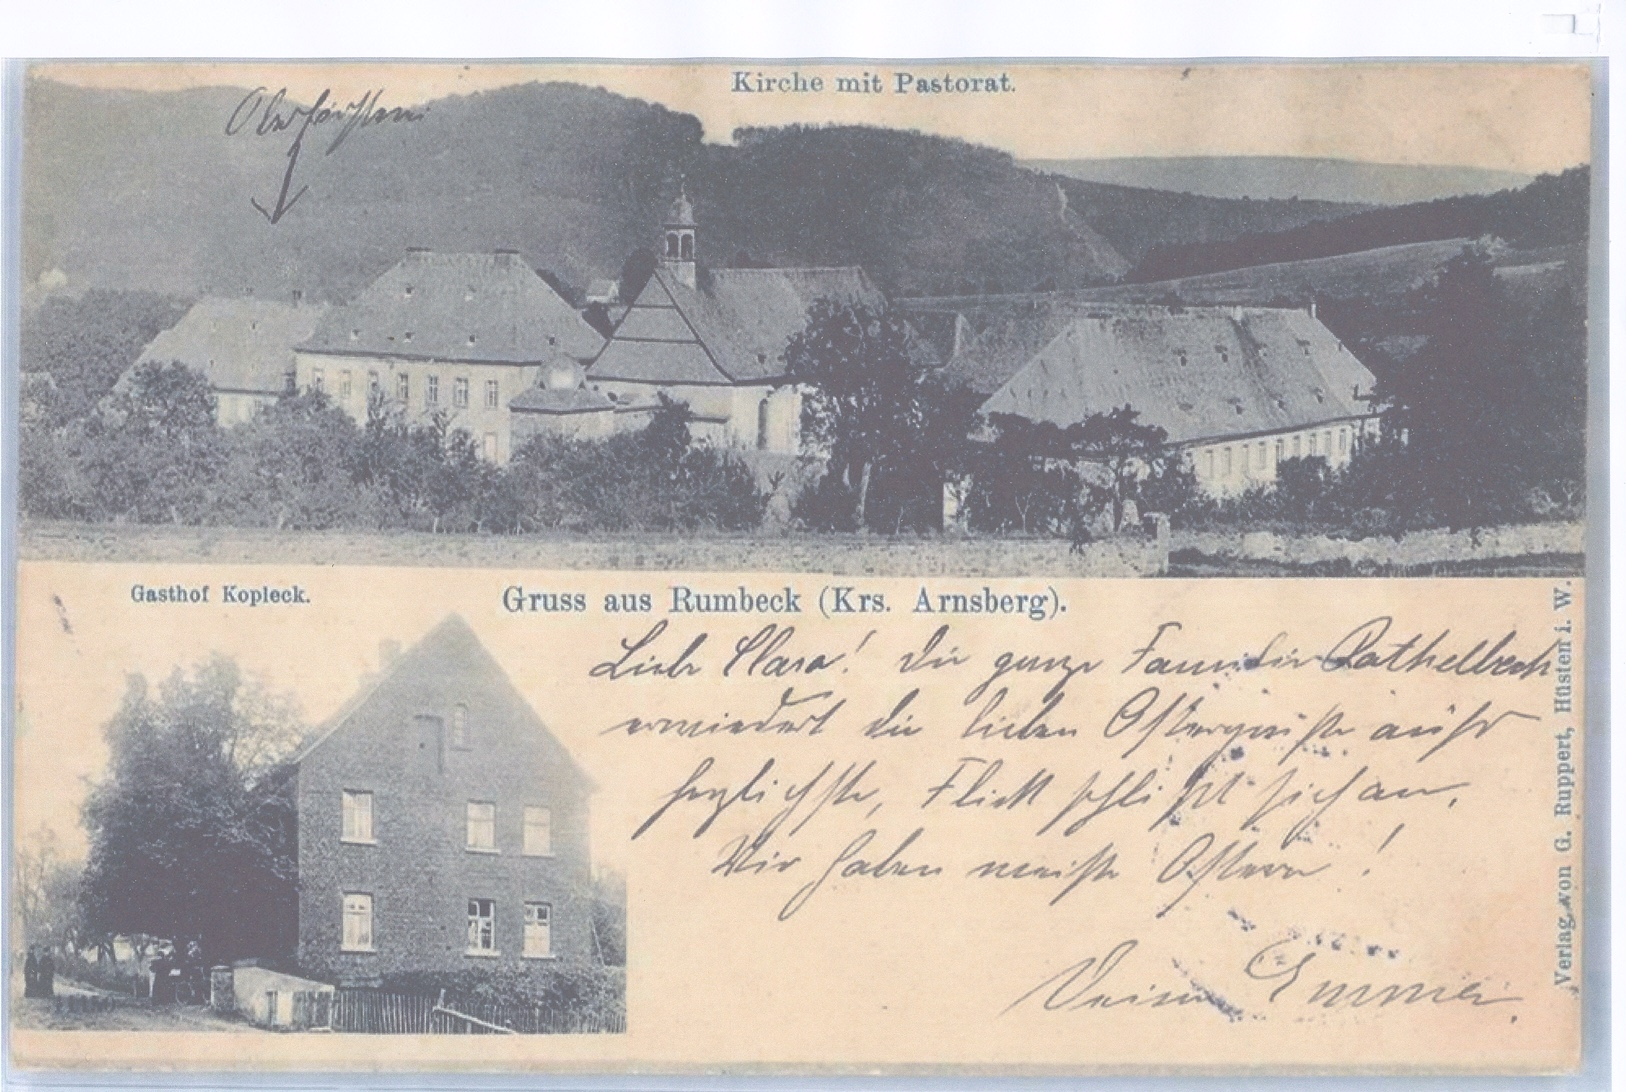 Kirche mit Pastorat.
Oberförsterei
Gasthof Kopleck.
Gruss aus Rumbeck (Krs. Arnsberg).
Liebe Clara! Die ganze Familie Rathelbeck
erwiedert die lieben Ostergrüße aufs
herzlichste, schließt sich an.
Wir haben weiße Ostern!
Deine
Verlag von G. Ruppert, Hüsten i. W.